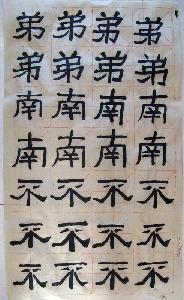 弟弟弟弟
弟弟弟弟
南南南南
南南南南
不不不不
不不不不
不不不不